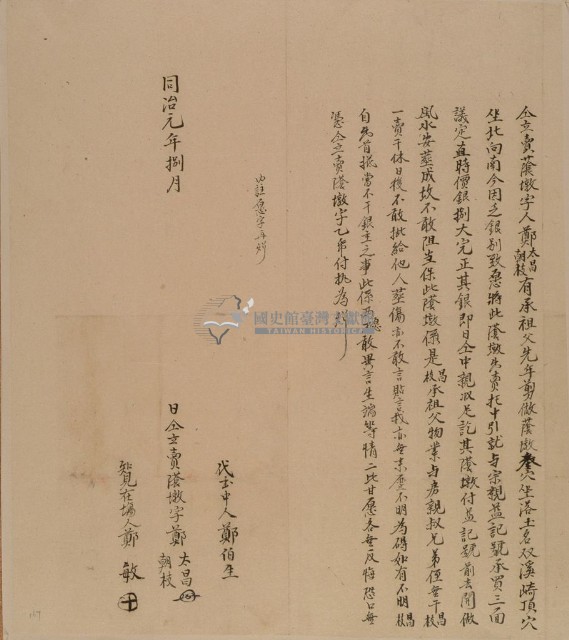 仝立賣蔭墩字人鄭太昌朝枝有承祖父先年剪做蔭墩叁穴坐落土名双溪崎頂穴
坐北向南今因乏銀別致愿將此蔭墩先賣托中引就与宗親益記號承買三面
議定直時價銀捌大完正其銀即日仝中親收足訖其蔭墩付益記號前去開做
風水安葬成坟不敢阻当保此蔭墩係是昌枝承祖父物業与房親叔兄弟侄無干昌枝
一賣千休日後不敢批給他人葬傷亦不敢言貼言找亦無來歷不明為碍如有不明昌枝
自出首抵當不干銀主之事此係兩愿敢異言生端等情二比甘愿各無反悔恐口無
憑仝立賣蔭墩字乙帋付执為炤
內註愿字再炤
同治元年捌月
代書中人鄭伯生
日仝立賣蔭墩字鄭太昌朝枝
知見在場人鄭敏
國史館臺灣文獻館
TAIWAN HISTORICA